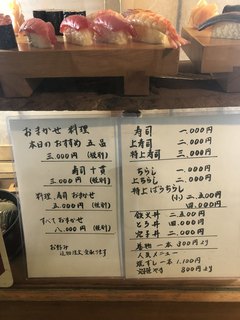 おまかせ 料理
本日のおすすめ 五品
三.000円 (税別)
寿司 十貫
三.000円 (税別)
料理.寿司 おまかせ
五.000円 (税別)
すべて おまかせ
八.000円 (税別)
お好み
寿司 一.000円
上寿司 二.000円
特上寿司 三.000円
ちらし 一.000円
上ちらし 二.000円
特上ばらちらし
(小) 二.五00円
四.000円
鉄火丼 二.五00円
とろ丼 四.000円
穴子丼 二.000円
巻物 一本 300円より
人気メニュー
一本 1.100円
800円より